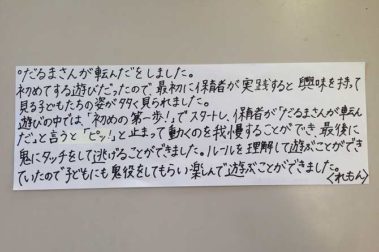 °だるまさんが転んだをしました。
初めてする遊びだったので、最初に保育者が実践すると興味を持って
見る子どもたちの姿が多く見られました。
遊びの中では、「初めの第一歩!」でスタートし、保育者が「だるまさんが転ん
だ」と言うと「ピッ!」と止まって動くのを我慢することができ、最後に
鬼にタッチをして逃げることができました。ルールを理解して遊ぶことができ
ていたので子どもにも鬼役をしてもらい楽しんで遊ぶことができました。
<れもん>